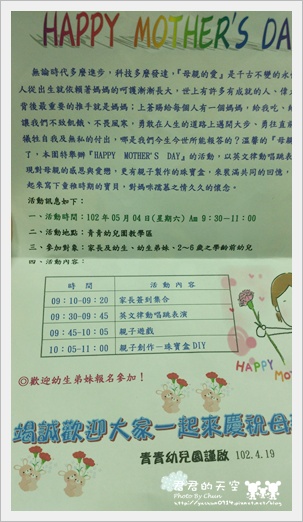 HAPPY MOTHER'S DA
無論時代多麼進步,科技多麼發達,『母親的愛』是千古不變的永
人從出生就依賴著媽媽的呵護漸漸長大,世上有許多有成就的人、偉
背後最重要的推手就是媽媽;上蒼賜給每個人有一個媽媽,給我吃、給
讓我們不致飢餓、不畏風寒,勇敢在人生的道路上邁開大步、勇往直前
犧牲自我及無私的付出,哪是我們今生今世所能報答的?溫馨的『母親
了,本園特舉辦『HAPPY MOTHER'S DAY』的活動,以英文律動唱跳表
現對母親的感恩與愛戀,更有親子製作的珠寶盒,來裝滿共同的回憶,
起來寫下童稚時期的寶貝,對媽咪孺慕之情久久的懷念。
活動訊息如下:
一、活動時間:102 年 05 月 04 日(星期六) Am 9:30-11:00
二、活動地點:青青幼兒園教學區
三、參加對象:家長及幼生、幼生弟妹、2~6 歲之學齡前幼兒
四、活動內容:
時 間 活 動 內 容
09:10-09:20 家長簽到集合
09:30-09:45 英文律動唱跳表演
09:45-10:05 親子遊戲
10:05-11:00 親子創作-珠寶盒DIY
◎歡迎幼生弟妹報名參加!
HAPPY MOT
竭誠歡迎大家一起來慶祝母
青青幼兒園謹啟 102.4.19
君君的天空
Photo By Chun